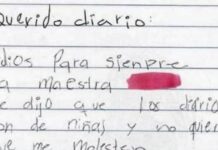 Querido diario:
dios Para sienpre
a maestra
e dijo que los diario
on de niñas y no quie
e me molesten